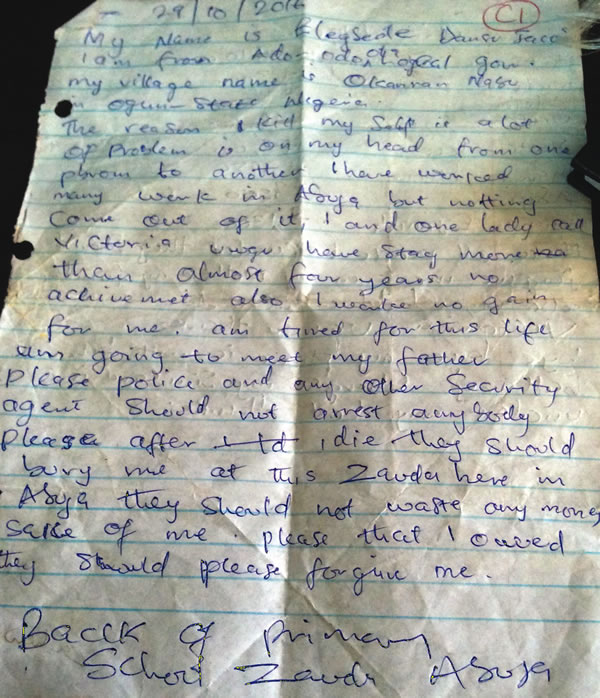 - 29/10/2016
C1
My Name is Dansu
I am from Ado-odo gov.
my village name is
in ogun State Nigeria.
The reason I kill my self is a lot
of problem is on my head from one
to another I have worked
many work in Abuja but notting
Come out of it, I and one lady call
Victoria have stay more
than almost four years no
achivemet also I no gain
for me. am tired for this life
am going to meet my father
Please police and any other Security
agent should not arrest anybody
please after I die they should
bury me at this Zauda here in
Abuja they should not waste any money
sake of me. please that I owed
they should please forgive me.
Bacck of primary
School Zauda Abuja